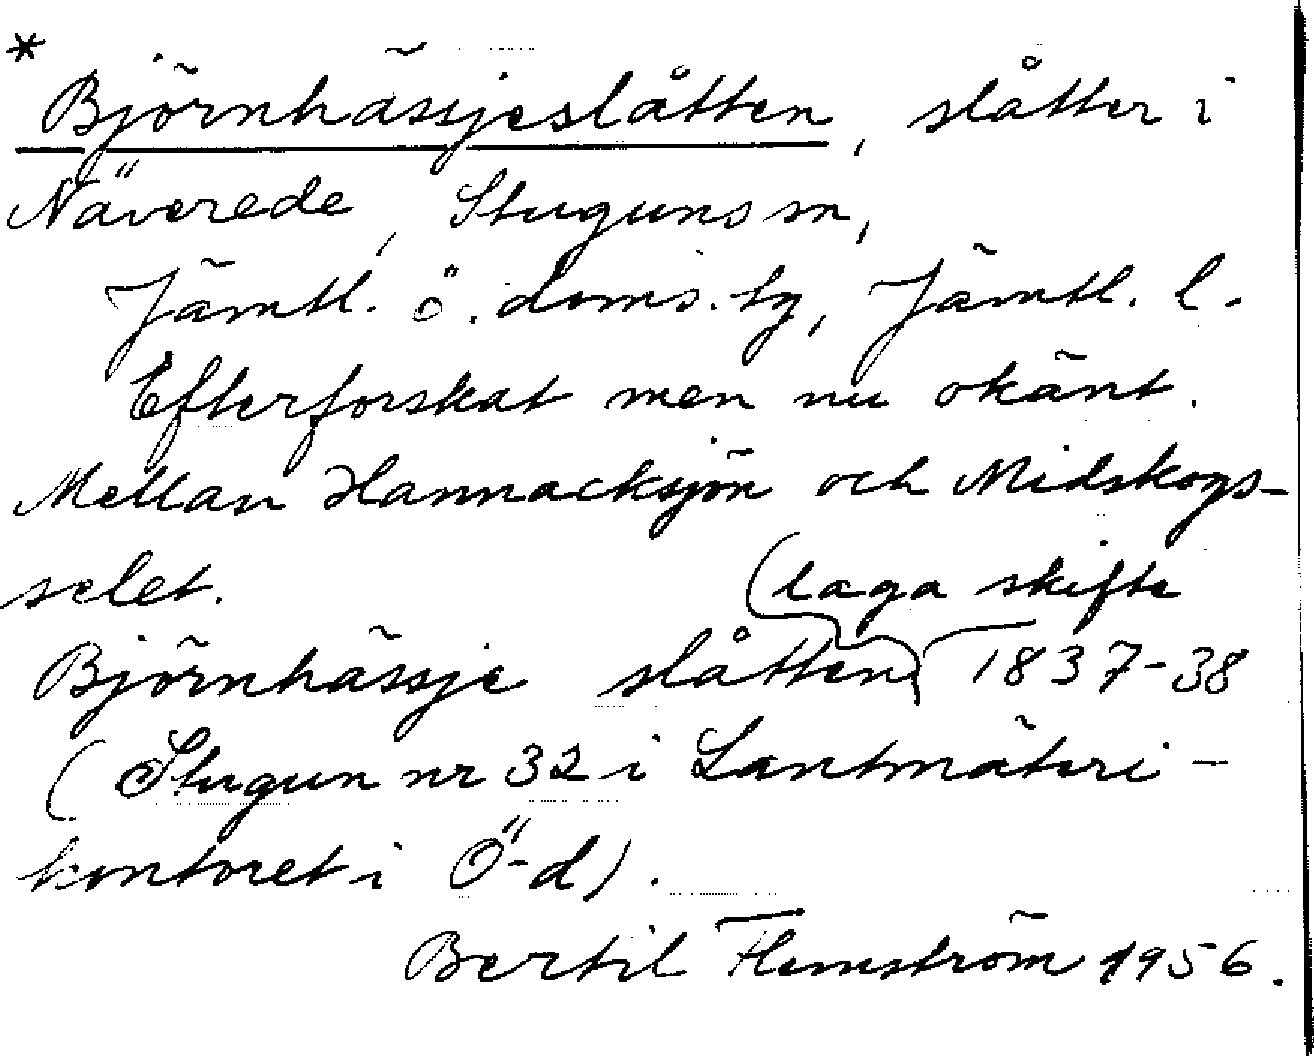 * Björnhässjeslåtten, slåtter i
Näverede, Stuguns sn,
Jämtl. ö. doms.-hg, Jämtl. l.
Efterforskat men nu okänt.
Mellan Hannacksjön och Midskogs-
selet.
(laga skifte
Björnhässje slåtten) 1837-38
(Stugun nr 32 i Lantmäteri-
kontoret i Ö-d).
Bertil Flemström 1956.